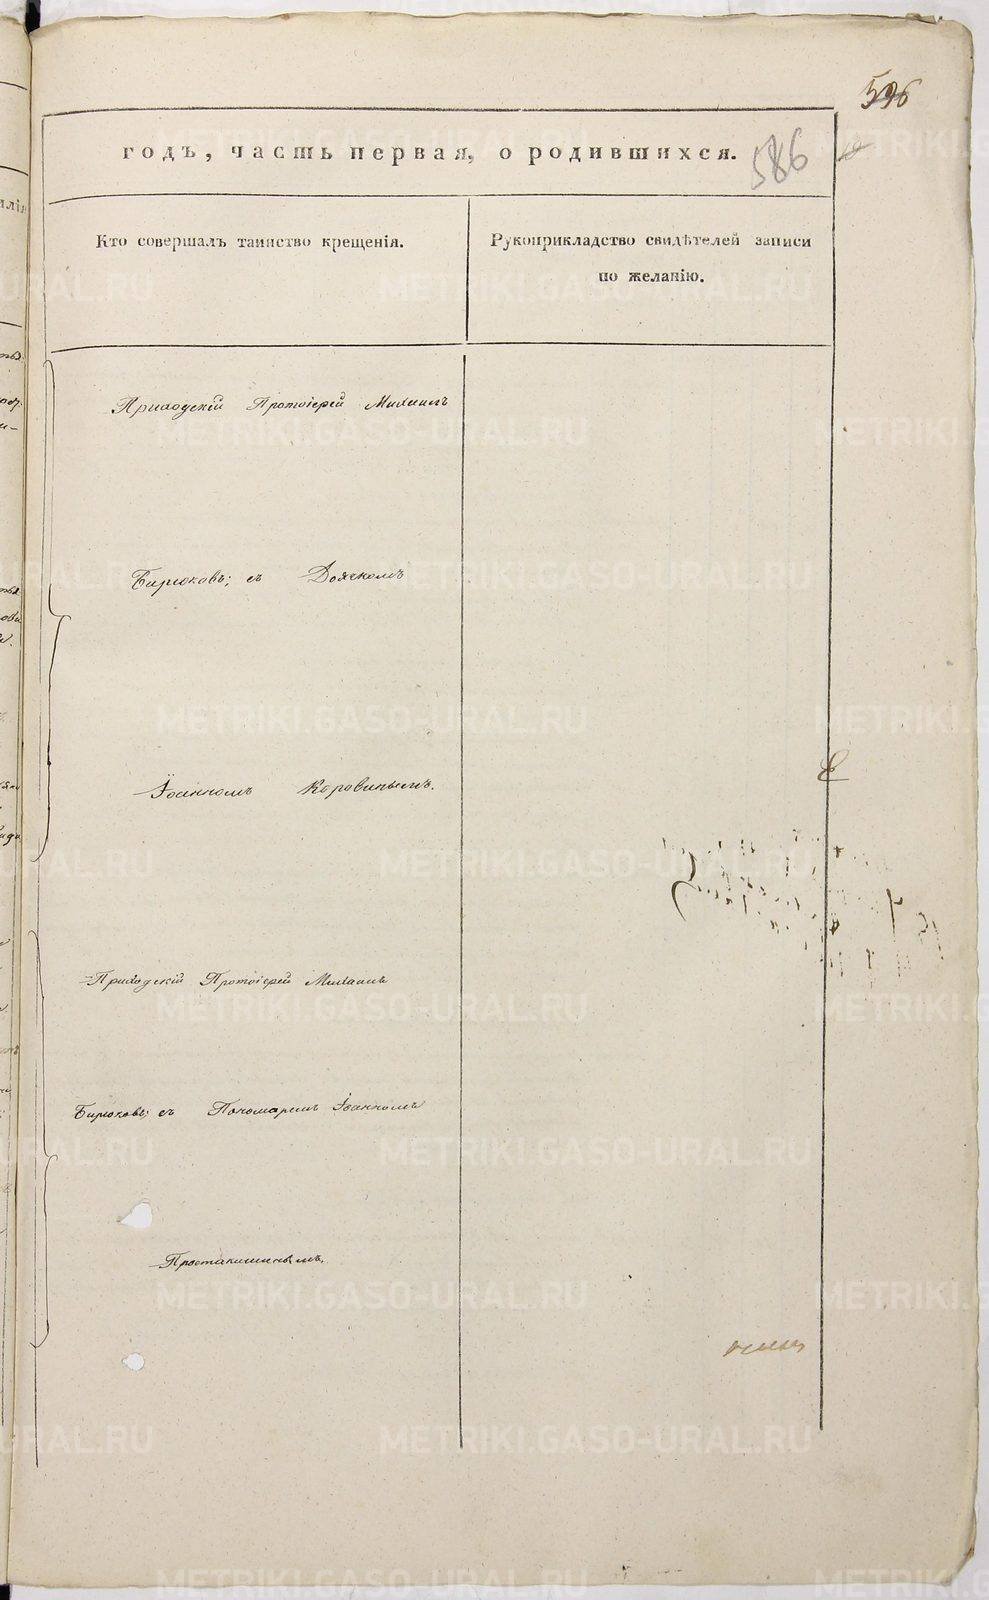 596
586
годъ, часть первая, о родившихся.
Кто совершалъ таинство крещенія.
Рукоприкладство свидѣтелей записи
по желанію.
Приходскій Протоіерей Михаилъ
Бирюковъ; съ Дьячкомъ
Іоанномъ Коровинымъ.
Приходскій Протоіерей Михаилъ
Бирюковъ; съ Пономаремъ Іоанномъ
Простакишинымъ.
METRIKI.GASO-URAL.RU